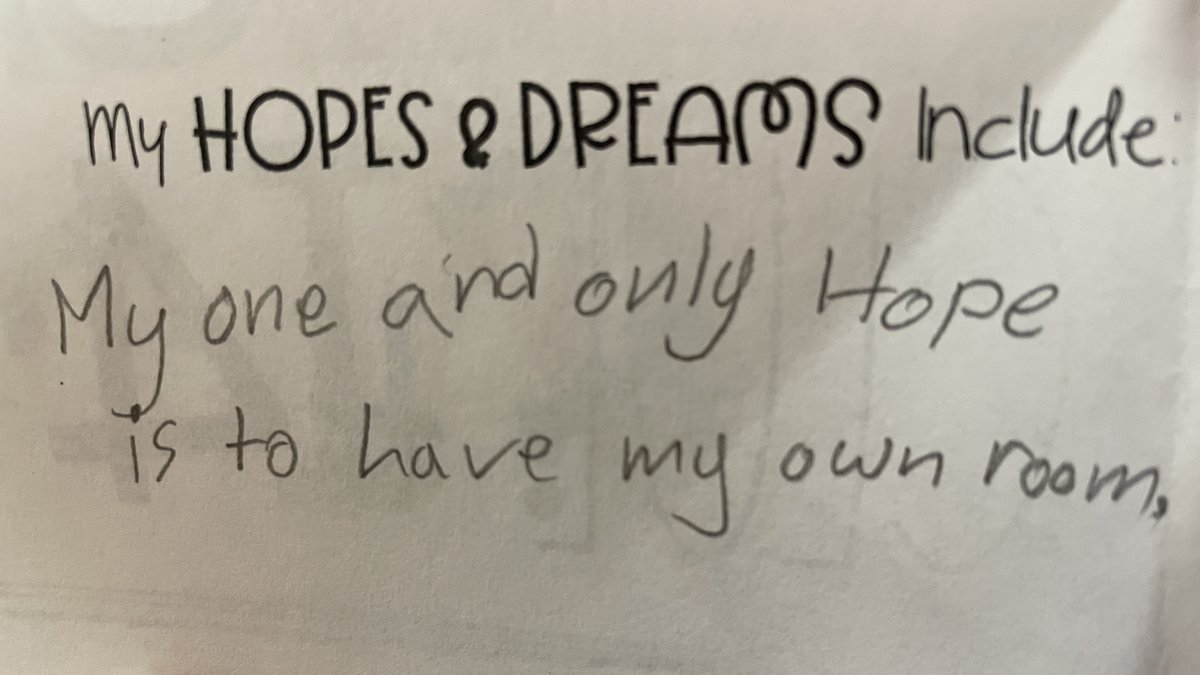 My HOPES & DREAMS Include:
My one and only Hope
is to have my own room.